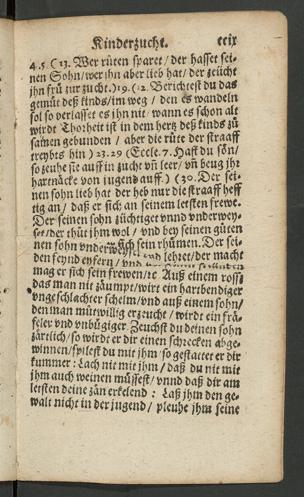 Kinderzucht. ccix
4.5 (13. Wer růten sparet / der hasset sei-
nen Sohn / wer ihn aber lieb hat / der zeücht
ihn frü zur zucht.) 19. (12. Berichtest du das
gemüt deß kinds / im weg / den es wandeln
sol so verlasset es ihn nit / wann es schon alt
wirdt Thorheit ist in dem hertz deß kinds zů
samen gebunden / aber die růte der straaff
treybts hin) 23.29 (Eccle. 7. Hast du sön /
so zeuhe sie auff in zucht vñ leer / vñ beug jhr
hartnäcke von jugend auff.) (30. Der sei-
nen sohn lieb hat der heb nur die straaff heff
tig an / daß er sich an seinem letsten frewe.
Der seinen sohn züchtiget vnnd vnderwey-
set / der thůt jhm wol / vnd bey seinen gůten
nen sohn vnderweyset sich sein rhümen. Der sei-
den feynd eyfern / vnd lehret / der macht
mag er sich sein frewen / rc Auß einem rossz
das man nit zäumpt / wirt ein hartbendiger
vngeschlachter schelm / vnd auß einem sohn /
den man mütwillig erzeucht / wirdt ein frä-
feler vnd vnbügiger. Zeuchst du deinen sohn
zärtlich / so wirde er dir einen schrecken abge-
winnen / spilest du mit jhm / so gestattet er dir
kummer: Lach nit mit jhm / daß du nit mit
jhm auch weinen müssest / vnnd daß dir am
letsten deine zän erkelend: Laß jhm den ge-
walt nicht in der jugend / pleuhe jhm seine